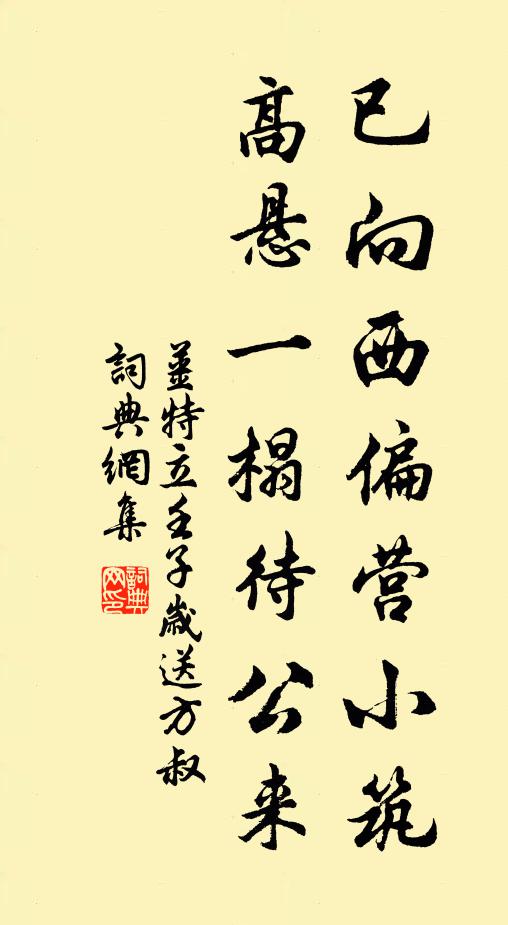 已向西偏营小筑
高悬一榻待公来
薑特立壬子歲送方叔
詞典網集
詞典
网印